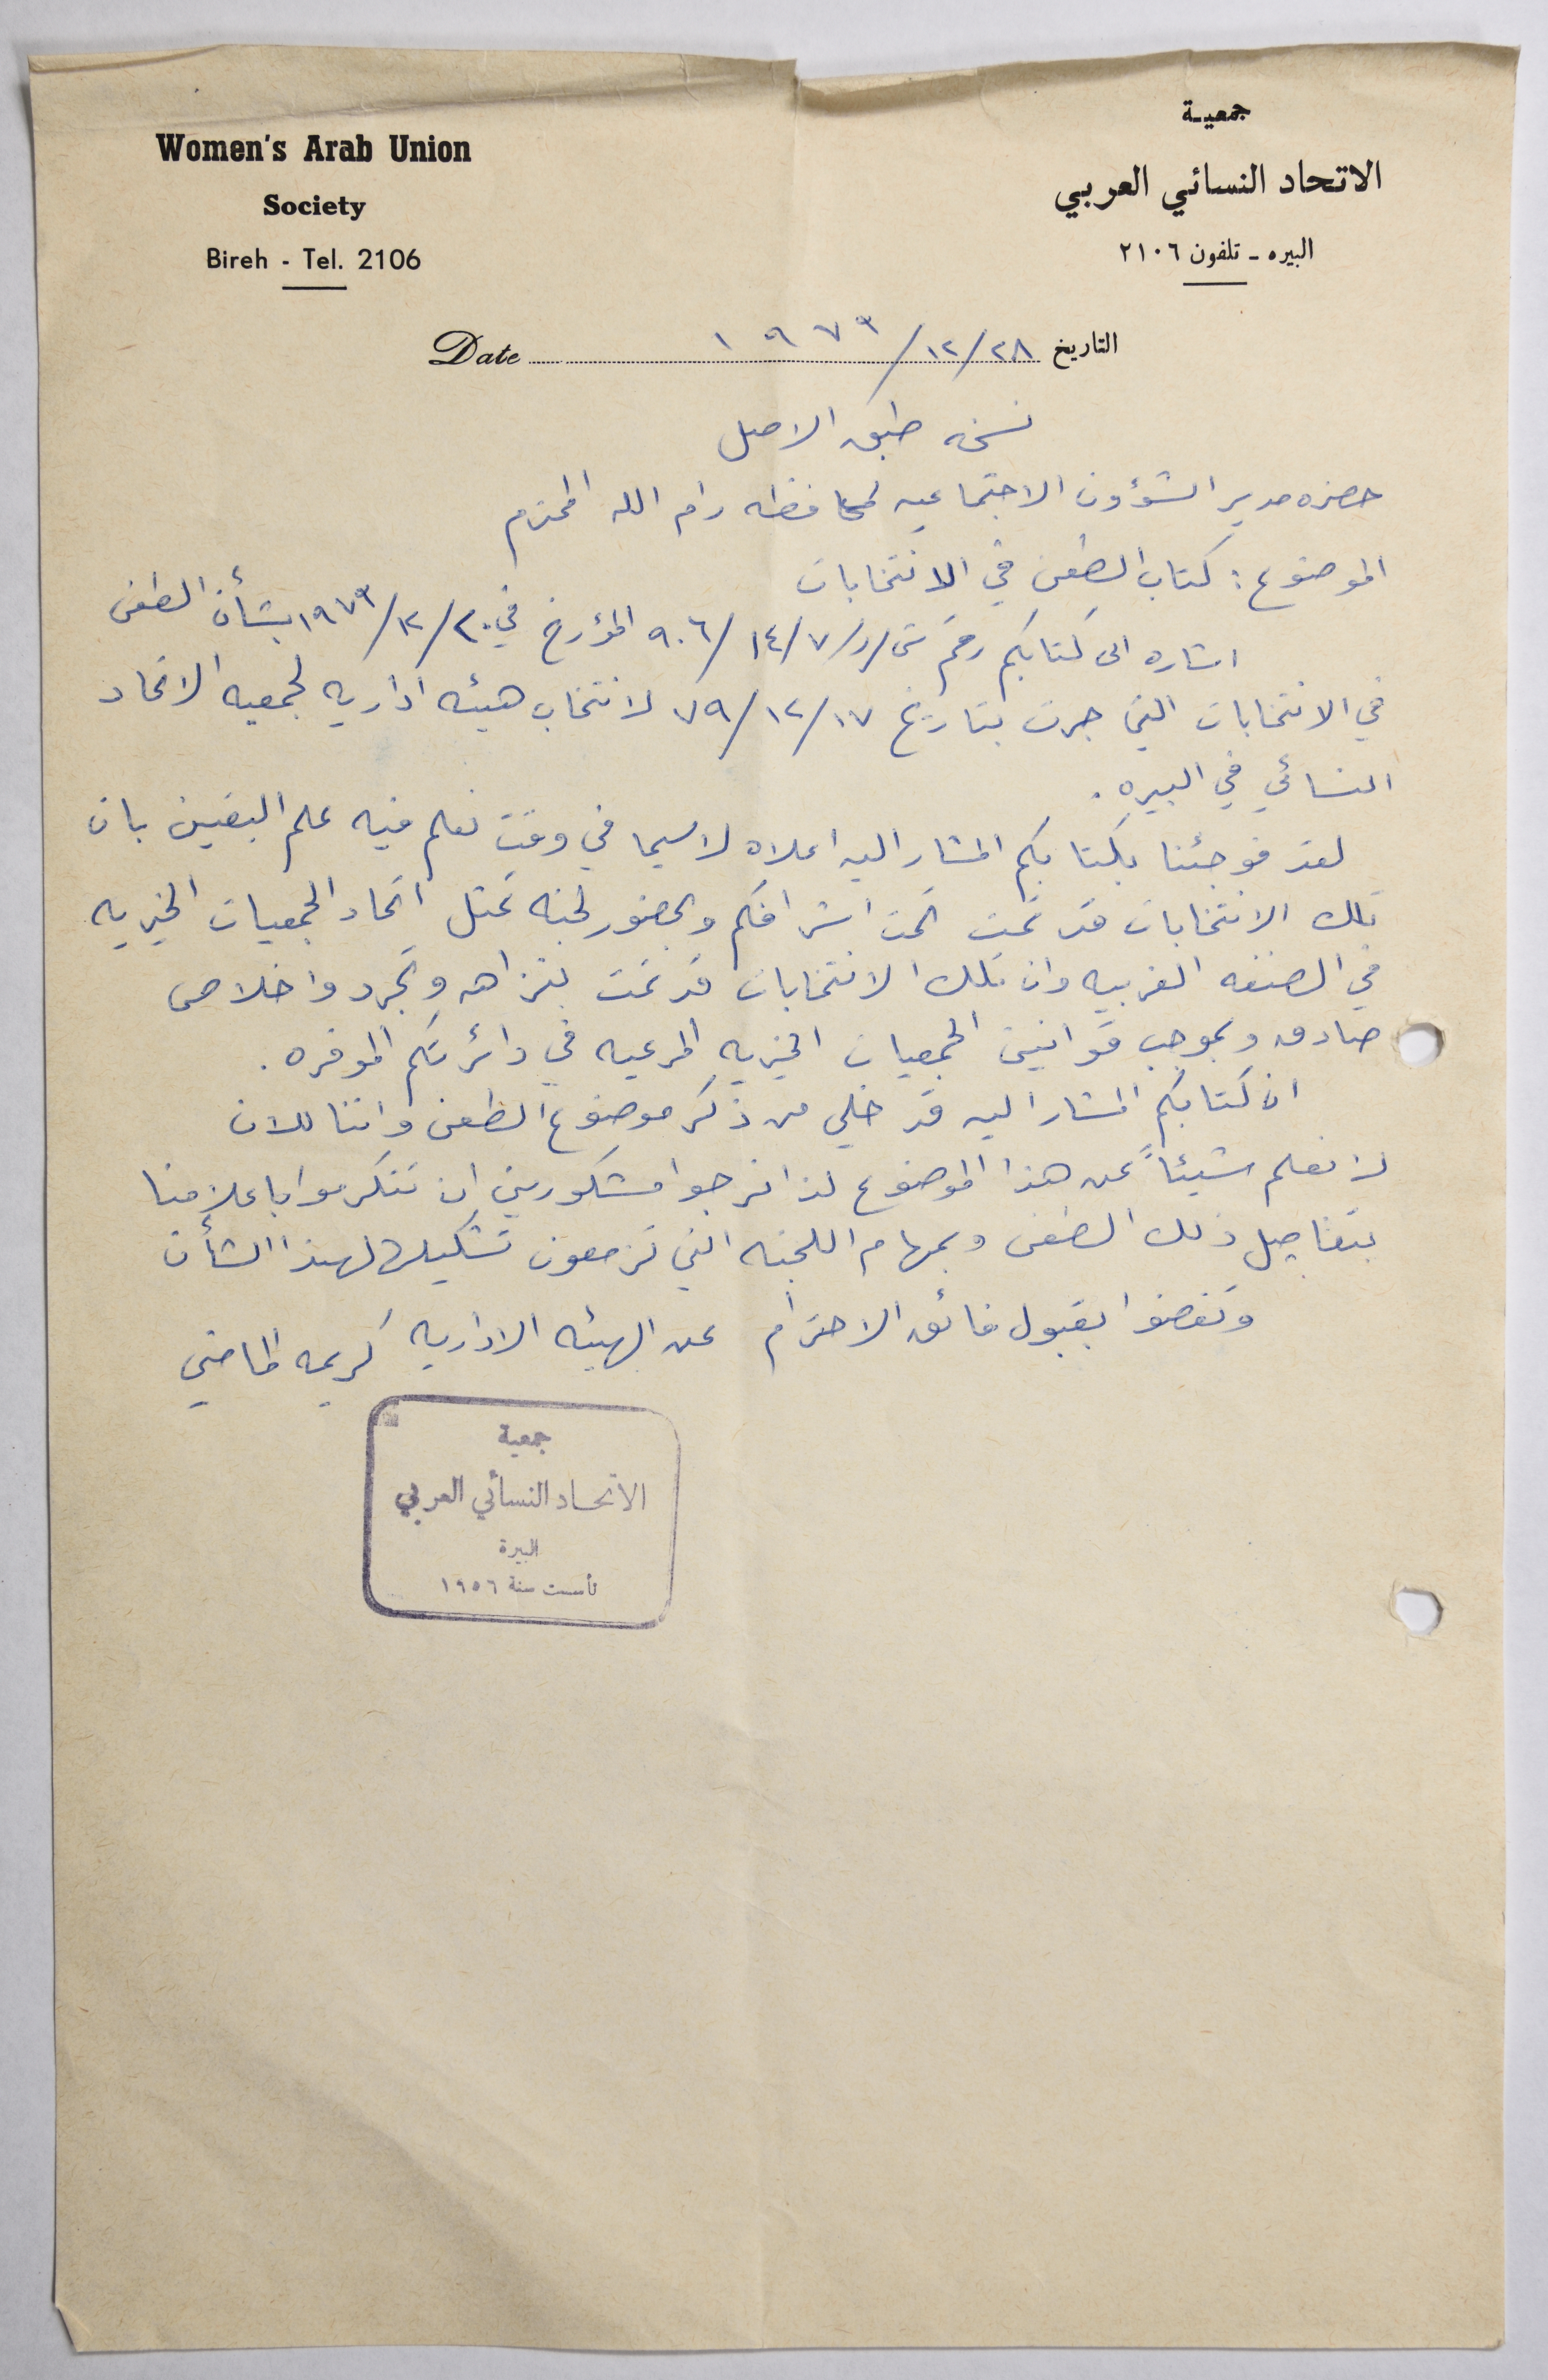 Women's Arab Union
Society
Bireh - Tel. 2106
جمعيـة
الاتحاد النسائي العربي
البيره - تلفون ٢١٠٦
التاريخ ٢٨/١٢/١٩٧٩ Date
نسخه طبق الاصل
حضره مدير الشؤون الاجتماعيه لمحافظه رام الله المحترم
الموضوع : كتاب الطعن في الانتخابات
اشاره الى كتابكم رقم ش/ر/٧/١٤/٩٠٦ المؤرخ في ٢٠/١٢/١٩٧٩ بشأن الطعن
في الانتخابات التي جرت بتاريخ ١٧/١٢/٧٩ لانتخاب هيئه اداريه لجمعيه الاتحاد
النسائي في البيره .
لقد فوجئنا بكتابكم المشار اليه اعلاه لاسيما في وقت نعلم فيه علم اليقين بان
تلك الانتخابات قد تمت تحت اشرافكم وبحضور لجنه تمثل اتحاد الجمعيات الخيريه
في الضفه الغربيه وان تلك الانتخابات قد تمت بنزاهه وتجرد واخلاص
صادق وبموجب قوانين الجمعيات الخيريه المرعيه في دائرتكم الموقره .
ان كتابكم المشار اليه قد خلي من ذكر موضوع الطعن واننا للان
لا نعلم شيئاً عن هذا الموضوع لذا نرجوا مشكورين ان تتكرموا باعلامنا
بتفاصيل ذلك الطعن وبمهام اللجنه التي تزمعون تشكيلها لهذا الشأن
وتفضلوا بقبول فائق الاحترام عن الهيئه الاداريه كريمه الماضي
جمعية
الاتحـاد النسائي العربي
البيرة
تأسست سنة ١٩٥٦